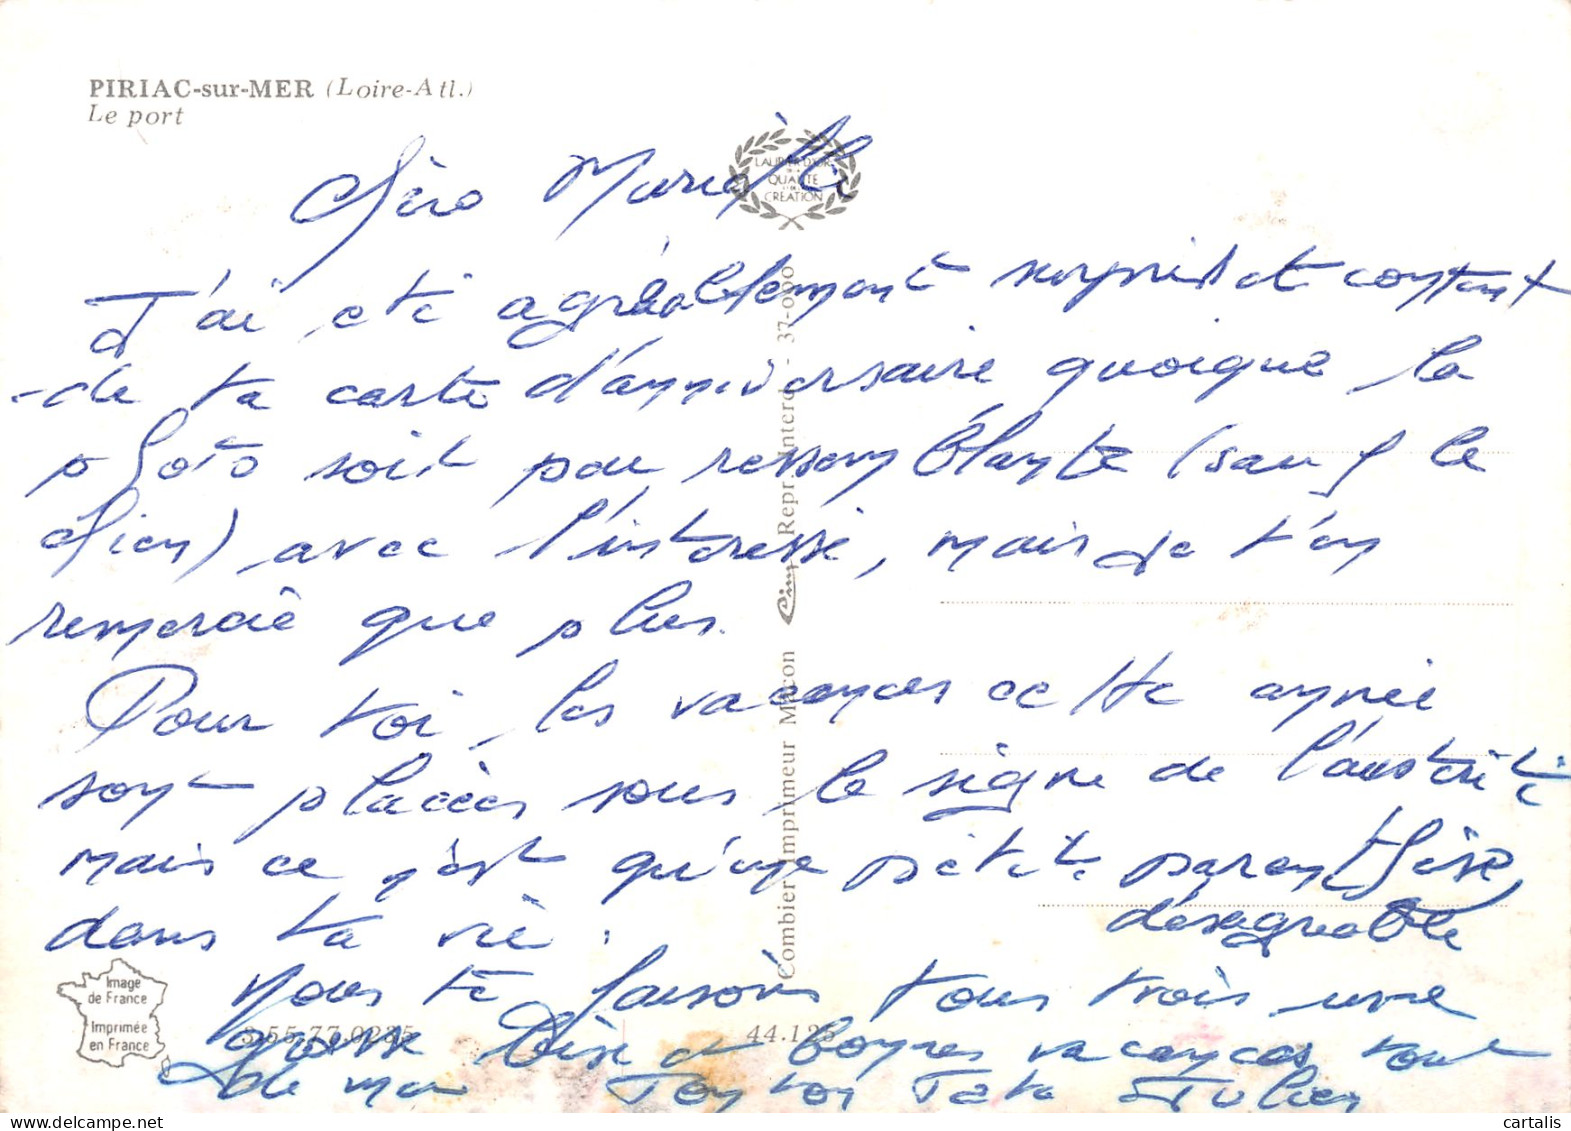 PIRIAC-sur-MER (Loire-Atl.)
Le port
LAURIER D'OR
QUALITÉ
CRÉATION
Chère Marielle
J'ai été agréablement surpris et content
de ta carte d'anniversaire quoique la
photo soit peu ressemblante (sauf le
chien) avec l'intéressé, mais je t'en
remercie que plus.
Pour toi, les vacances cette année
sont placées sous le signe de l'austérité
mais ce n'est qu'une petite parenthèse
désagréable
dans ta vie.
Nous te faisons tous trois une
grosse bise et bonnes vacances tout
de
Tonton Tata Julien
Combier Imprimeur Macon Cim Repr. Interd. - 37-000
Image
de France
Imprimée
en France
3.55.77.0235
44.125
cartalis